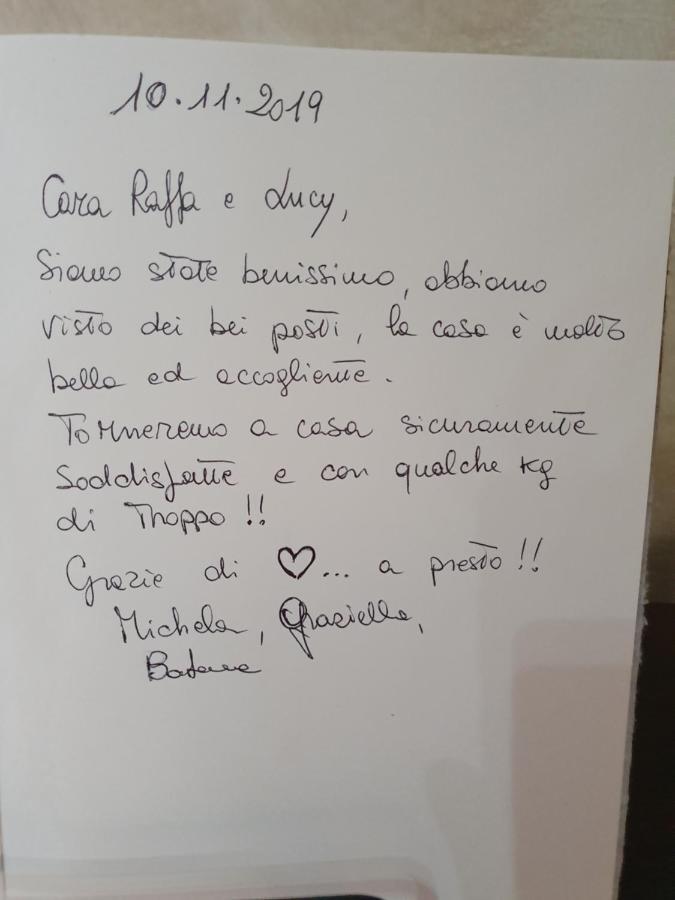 10.11.2019
Cara Raffa e Lucy,
Siamo state benissimo, abbiamo
visto dei bei posti, la casa è molto
bella ed accogliente.
Torneremo a casa sicuramente
Soddisfatte e con qualche kg
di Troppo!!
Grazie di ♡... a presto!!
Michela, Graziella,